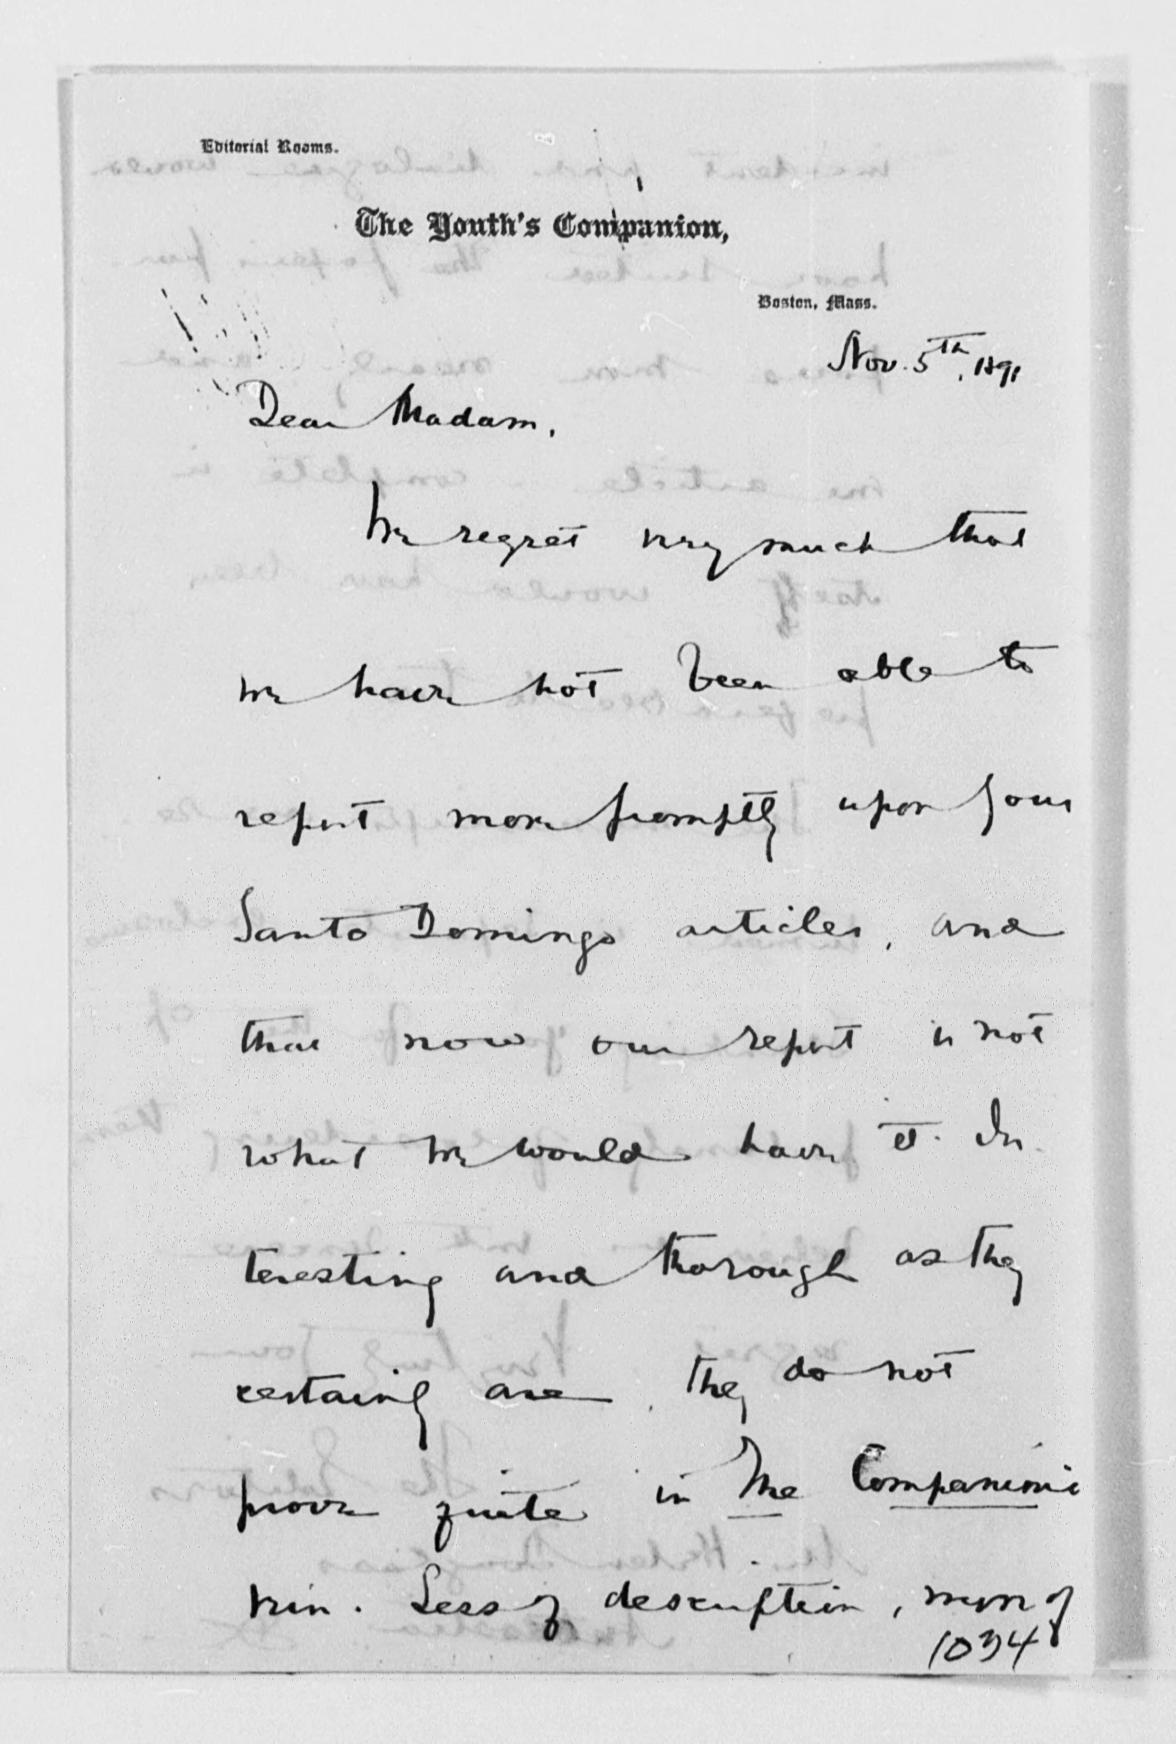 Editorial Rooms.
The Youth's Companion,
Boston, Mass.
Nov. 5th, 1891
Dear Madam,
We regret very much that
we have not been able to
report more promptly upon your
Santo Domingo articles, and
that now our report is not
what we would have it. In-
teresting and thorough as they
certainly are, they do not
prove quite in The Companion's
vein. Less of description, more of
1034